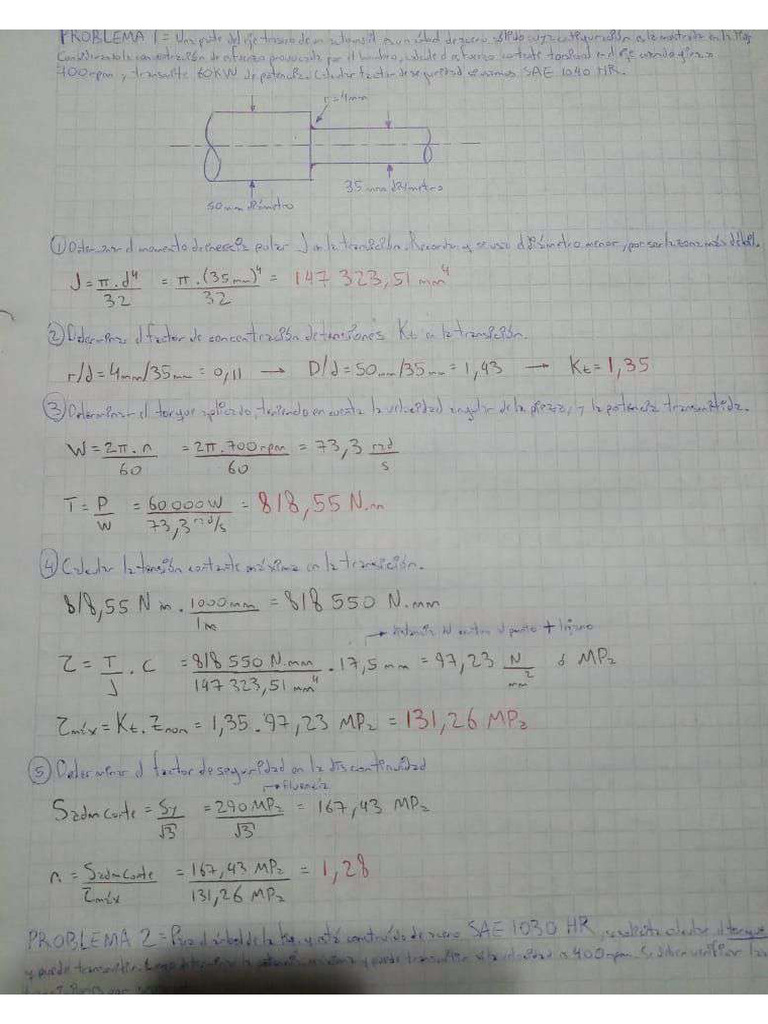 PROBLEMA 1 = Una parte del eje trasero de un automóvil es un árbol de acero sólido cuya configuración es la mostrada en la fig.
Considerando la concentración de esfuerzo provocada por el hombro, calcule el esfuerzo cortante torsional en el eje cuando gira a
700 rpm y transmite 60KW de potencia. Calcular factor de seguridad si usamos SAE 1040 HR.
r=4mm
35 mm diámetro
50mm diámetro
① Determinar el momento de inercia polar J en la transición. Recordar q se usa diámetro menor, por ser la zona más débil.
J = π.d⁴/32 = π.(35mm)⁴/32 = 147 323,51 mm⁴
② Determinar el factor de concentración de tensiones Kt en la transición.
r/d = 4mm/35mm = 0,11 → D/d = 50mm/35mm = 1,43 → Kt = 1,35
③ Determinar el torque aplicado, teniendo en cuenta la velocidad angular de la pieza, y la potencia transmitida.
W = 2π.n/60 = 2π.700rpm/60 = 73,3 rad/s
T = P/W = 60000W/73,3 rad/s = 818,55 N.m
④ Calcular la tensión cortante máxima en la transición.
818,55 N m . 1000mm/1m = 818 550 N.mm
→ distancia N entre el punto + lejano
Z = T/J . C = 818 550 N.mm/147 323,51 mm⁴ . 17,5 mm = 97,23 N/mm² ó MPa
Zmáx = Kt.Znom = 1,35.97,23 MPa = 131,26 MPa
⑤ Determinar el factor de seguridad en la discontinuidad
→ fluencia
Sadm corte = Sy/√3 = 290 MPa/√3 = 167,43 MPa
n = Sadm corte/Zmáx = 167,43 MPa/131,26 MPa = 1,28
PROBLEMA 2 = Para el árbol de la fig. q está construido de acero SAE 1030 HR, se solicita calcular el torque
q puede transmitir. Luego determinar la potencia máxima q puede transmitir si la velocidad es 400rpm. Se deben verificar las